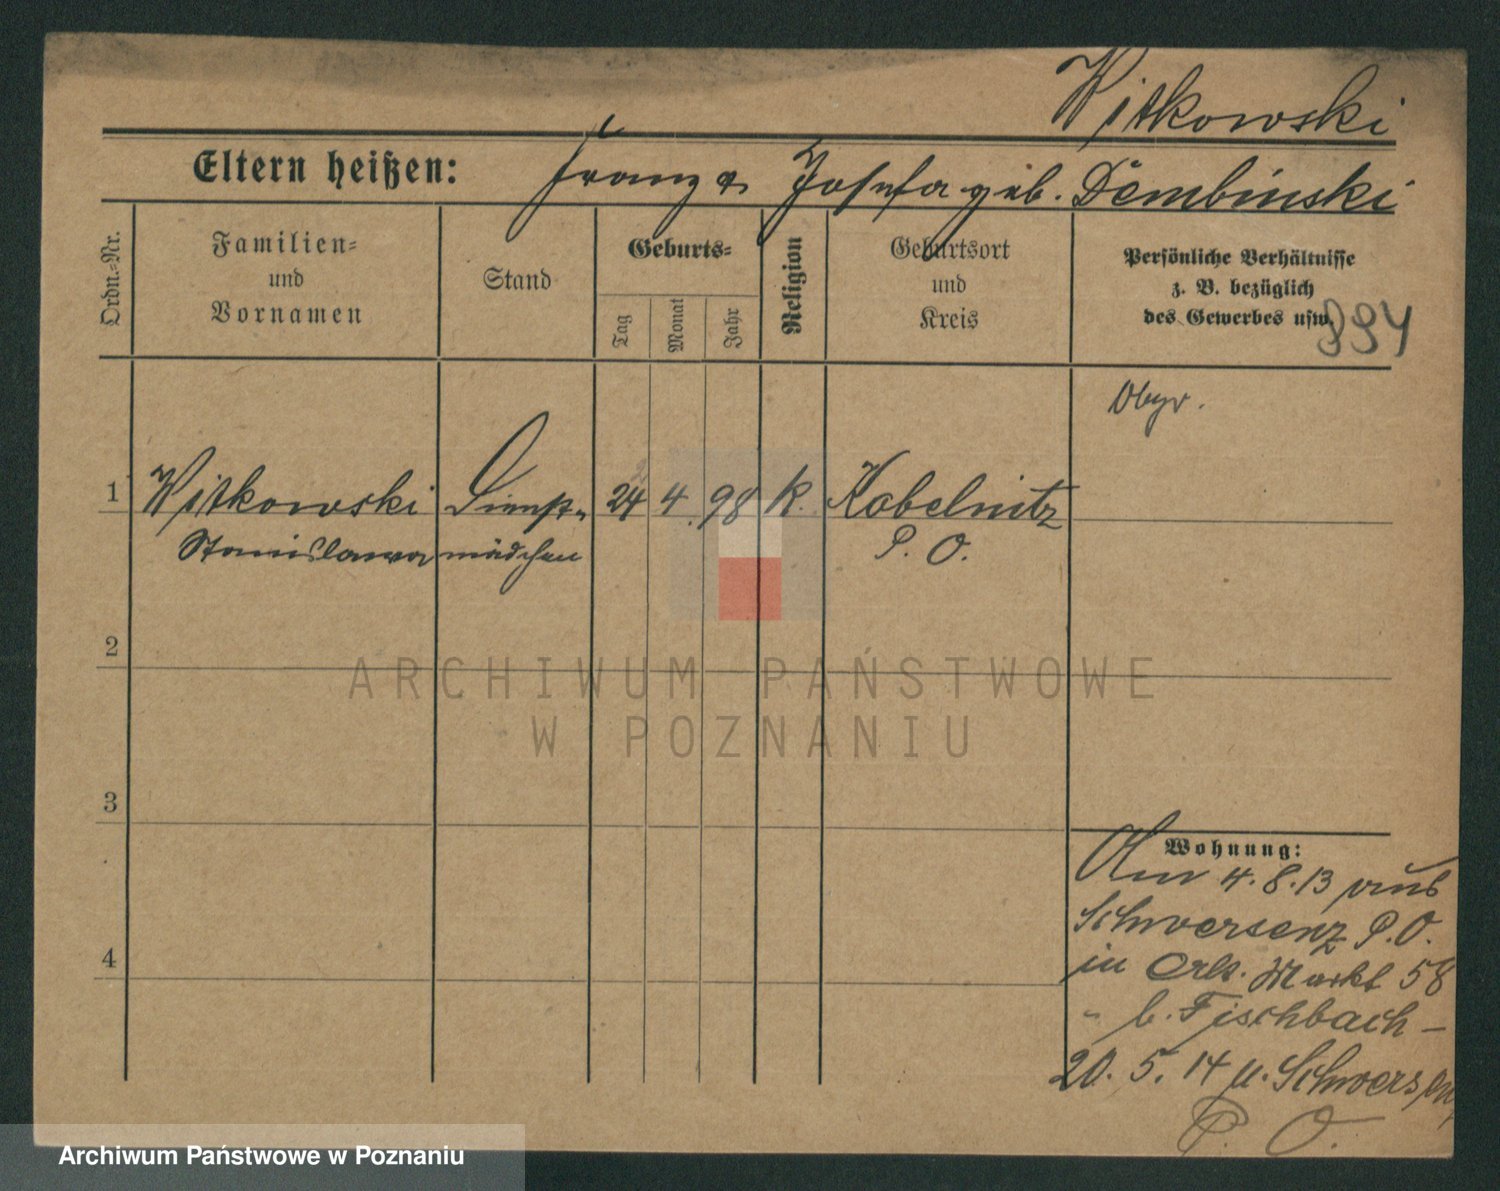 Witkowski
Eltern heißen: Franz u. Josefa geb. Dembinski
Ordn.-Nr.
Familien-
und
Vornamen
Stand
Geburts-
Tag
Monat
Jahr
Religion
Geburtsort
und
Kreis
Persönliche Verhältnisse
z. B. bezüglich
des Gewerbes usw.
894
1 Witkowski Dienst- 24 4. 98 k. Kobelnitz
Stanislawa mädchen P. O.
2
3
4
Wohnung:
Am 4.8.13 aus
Schwersenz P.O.
in Markt 58
b. Fischbach -
20. 5. 14 n. Schwersenz
P. O.
ARCHIWUM PAŃSTWOWE
W POZNANIU
Archiwum Państwowe w Poznaniu